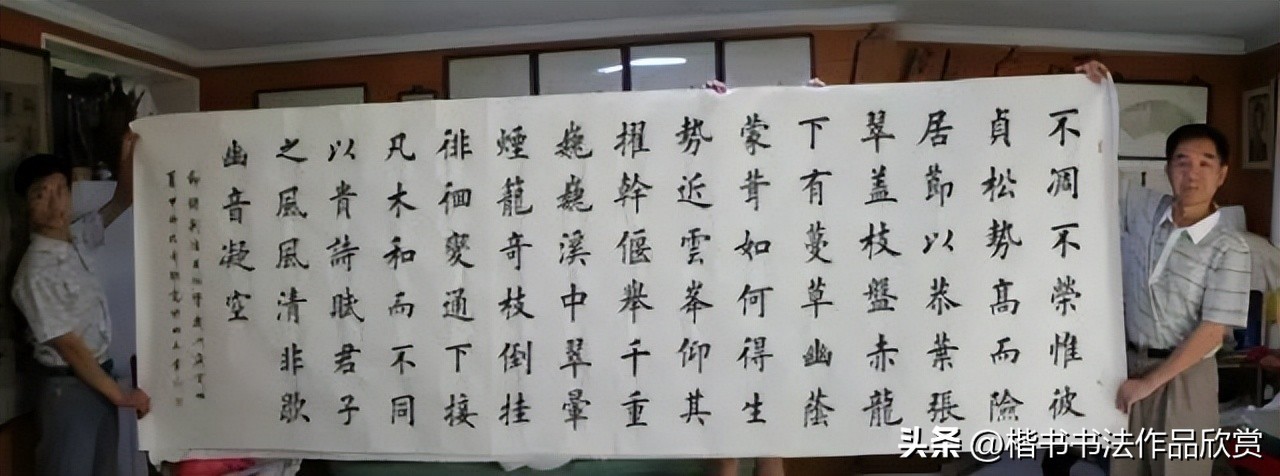 不凋不榮惟彼
貞松勢高而險
居節以恭葉張
翠盖枝盤赤龍
下有蔓草幽蔭
蒙茸如何得生
勢近雲峯仰其
擢幹偃舉千重
巍巍溪中翠暈
煙籠奇枝倒挂
徘徊變通下接
凡木和而不同
以貴詩賦君子
之風風清非歇
幽音凝空
头条 @楷书书法作品欣赏